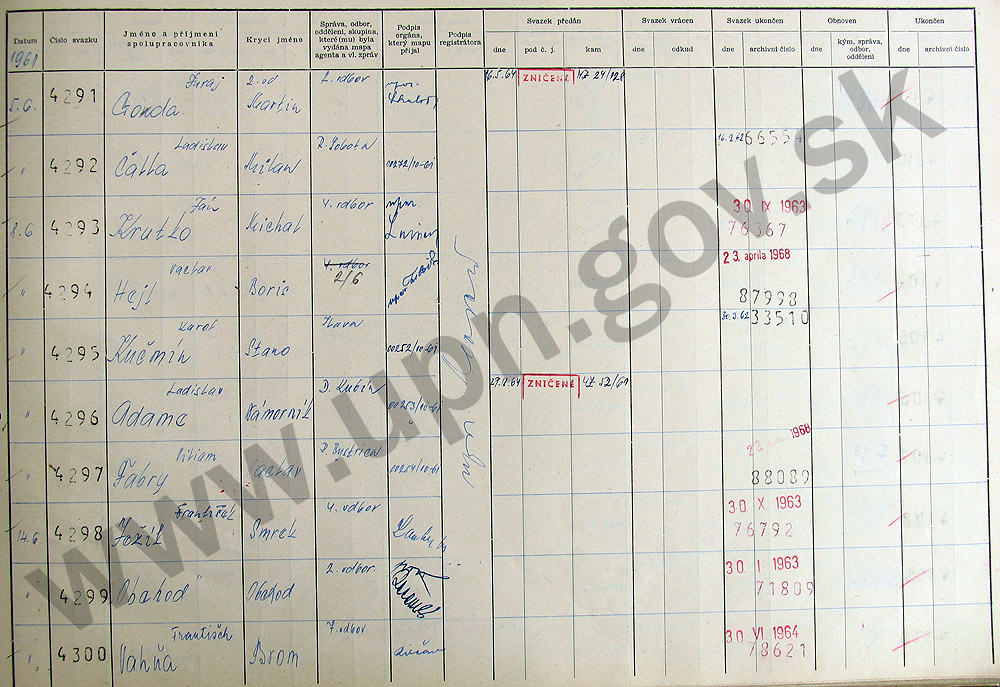 Datum
Číslo svazku
Jméno a příjmení
spolupracovníka
Krycí jméno
Správa, odbor,
oddělení, skupina,
které(mu) byla
vydána mapa
agenta a vl. zpráv
Podpis
orgánu,
který mapu
přijal
Podpis
registrátora
Svazek předán
dne
pod č. j.
kam
Svazek vrácen
dne
odkud
Svazek ukončen
dne
archivní číslo
Obnoven
dne
kým, správa,
odbor,
oddělení
Ukončen
dne
archivní číslo
1961
5.6. 4291 Juraj Gonda Martin 2. odbor 16.5.64 ZNIČENÉ 24/128
" 4292 Ladislav Milan R. Sobota 00272/10-61 16.2.62 66554
8.6 4293 Ján Krutko Michal V. odbor 30 IX 1963 76367
" 4294 Václav Hejl Boris V. odbor 2/6 23. apríla 1968 87998
" 4295 Karol Kučmín Stano Ilava 00252/10-61 30.3.62 33510
" 4296 Ladislav Adamc Námorník D. Kubín 00253/10-61 ZNIČENÉ 52/61
" 4297 Viliam Fábry Václav P. Bystrica 00254/10-61 23. 1968 88089
14.6. 4298 František Smrek V. odbor 30 X. 1963 76792
" 4299 Obchod " Obchod 2. odbor 30 I 1963 71809
" 4300 František Vahňa Brom 7. odbor 30 VI 1964 78621
www.upn.gov.sk